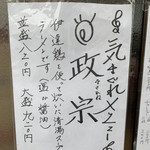 気まぐれメニュー
政宗
伊達鶏を使って炊いた清湯スープ
ラーメンです(塩or醤油)
並盛八二〇円 大盛九二〇円